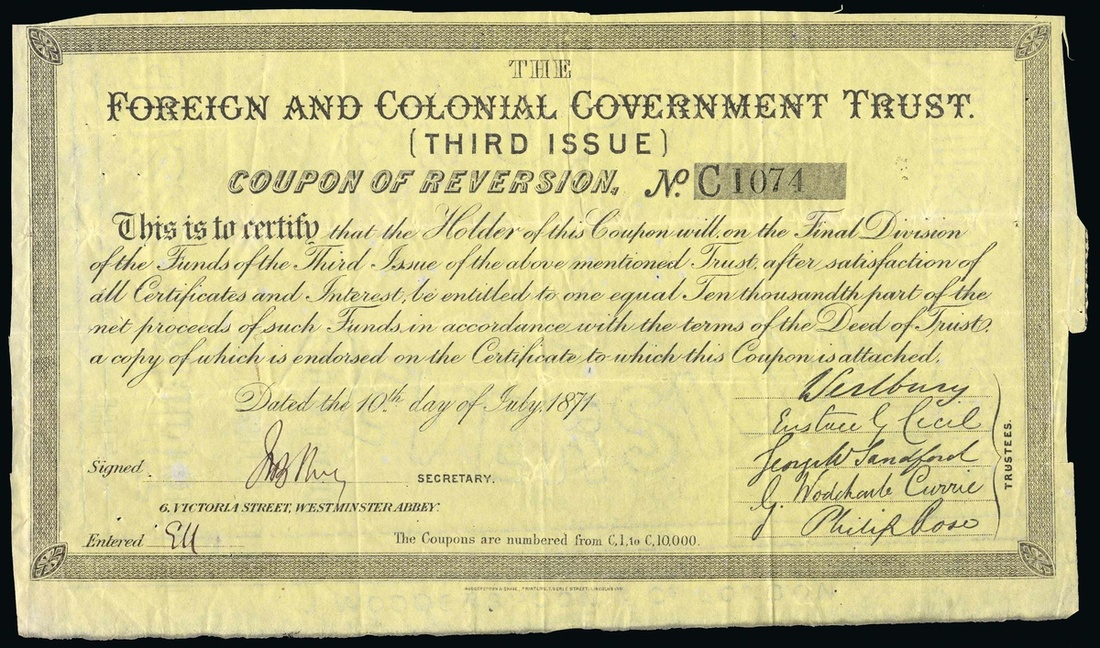 THE
FOREIGN AND COLONIAL GOVERNMENT TRUST.
(THIRD ISSUE)
COUPON OF REVERSION, No. C 1074
This is to certify that the Holder of this Coupon will, on the Final Division
of the Funds of the Third Issue of the above mentioned Trust, after satisfaction of
all Certificates and Interest, be entitled to one equal Ten thousandth part of the
net proceeds of such Funds, in accordance with the terms of the Deed of Trust,
a copy of which is endorsed on the Certificate to which this Coupon is attached.
Dated the 10th day of July, 1871
Westbury
Eustace G Cecil
George W Sandford
G. Wodehouse Currie
Philip Rose
TRUSTEES.
Signed SECRETARY.
6, VICTORIA STREET, WESTMINSTER ABBEY.
Entered
The Coupons are numbered from C,1, to C,10,000.